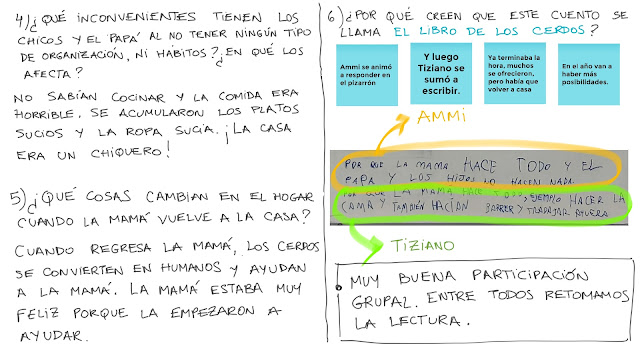 4) ¿QUÉ INCONVENIENTES TIENEN LOS
CHICOS Y EL PAPÁ AL NO TENER NINGÚN TIPO
DE ORGANIZACIÓN, NI HÁBITOS? ¿EN QUÉ LOS
AFECTA?
NO SABÍAN COCINAR Y LA COMIDA ERA
HORRIBLE. SE ACUMULARON LOS PLATOS
SUCIOS Y LA ROPA SUCIA. ¡LA CASA
ERA UN CHIQUERO!
5) ¿QUÉ COSAS CAMBIAN EN EL HOGAR
CUANDO LA MAMÁ VUELVE A LA CASA?
CUANDO REGRESA LA MAMÁ, LOS CERDOS
SE CONVIERTEN EN HUMANOS Y AYUDAN
A LA MAMÁ. LA MAMÁ ESTABA MUY
FELIZ PORQUE LA EMPEZARON A
AYUDAR.
6) ¿POR QUÉ CREEN QUE ESTE CUENTO SE
LLAMA EL LIBRO DE LOS CERDOS?
Ammi se animó
a responder en
el pizarrón
Y luego
Tiziano se
sumó a
escribir.
Ya terminaba la
hora, muchos
se ofrecieron,
pero había que
volver a casa
En el año van a
haber más
posibilidades.
AMMI
POR QUE LA MAMA HACE TODO Y EL
PAPA Y LOS HIJOS NO HACEN NADA
POR QUE LA MAMÁ HACE TODO, EJEMPLO HACER LA
CAMA Y TAMBIÉN HACÍAN BARRER Y TRABAJAR AFUERA
TIZIANO
MUY BUENA PARTICIPACIÓN
GRUPAL. ENTRE TODOS RETOMAMOS
LA LECTURA.